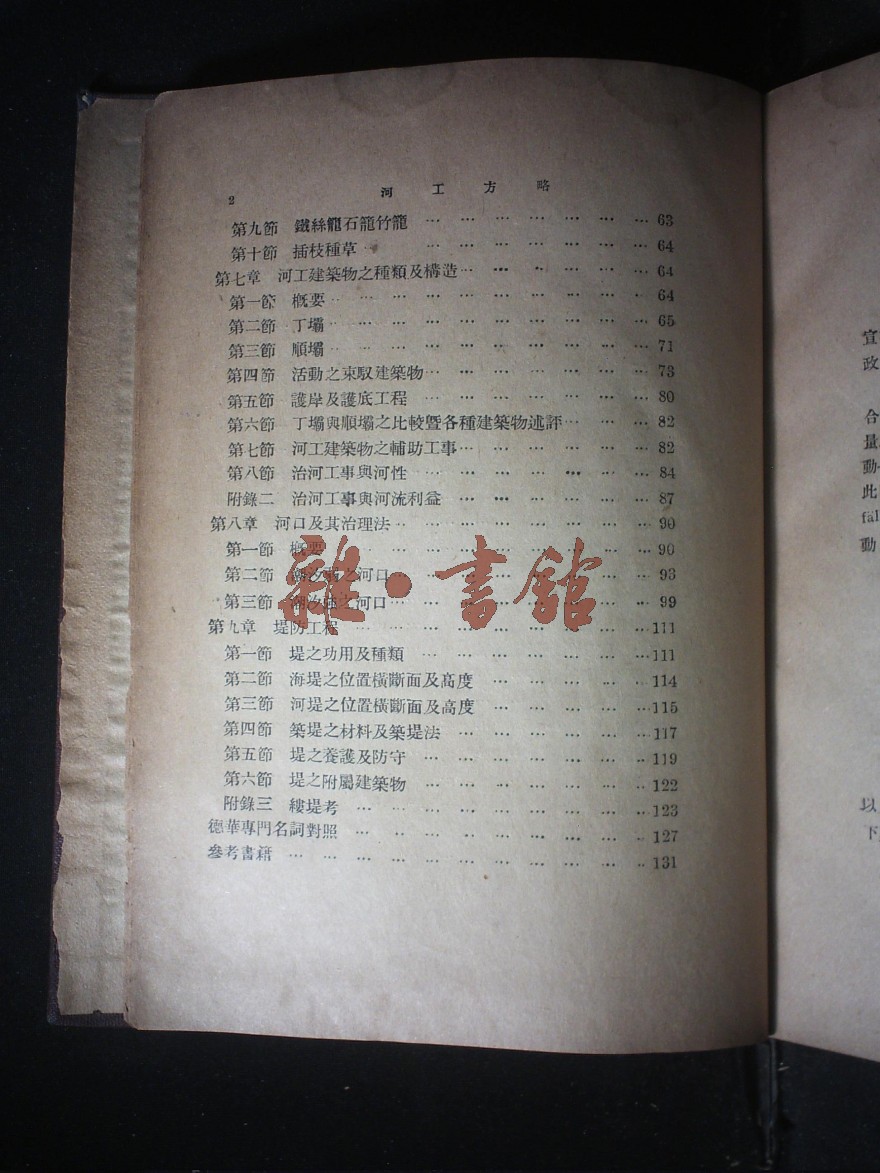 2 河工方略
第九節 鐵絲籠石籠竹籠 … … … … … … … 63
第十節 插枝種草 … … … … … … … … 64
第七章 河工建築物之種類及構造 … … … … … … 64
第一節 概要 … … … … … … … … … 64
第二節 丁壩 … … … … … … … … … 65
第三節 順壩 … … … … … … … … … 71
第四節 活動之束馭建築物 … … … … … … … 73
第五節 護岸及護底工程 … … … … … … … 80
第六節 丁壩與順壩之比較暨各種建築物述評 … … … 82
第七節 河工建築物之輔助工事 … … … … … … 82
第八節 治河工事與河性 … … … … … … … 84
附錄二 治河工事與河流利益 … … … … … … 87
第八章 河口及其治理法 … … … … … … … 90
第一節 概要 … … … … … … … … … 90
第二節 潮汐弱之河口 … … … … … … … 93
第三節 潮汐強之河口 … … … … … … … 99
第九章 堤防工程 … … … … … … … … 111
第一節 堤之功用及種類 … … … … … … … 111
第二節 海堤之位置橫斷面及高度 … … … … … 114
第三節 河堤之位置橫斷面及高度 … … … … … 115
第四節 築堤之材料及築堤法 … … … … … … 117
第五節 堤之養護及防守 … … … … … … … 119
第六節 堤之附屬建築物 … … … … … … … 122
附錄三 縷堤考 … … … … … … … … 123
德華專門名詞對照 … … … … … … … … 127
參考書籍 … … … … … … … … … … 131
雜·書館
宣
政
合
量
動
此
fäl
動
以
下